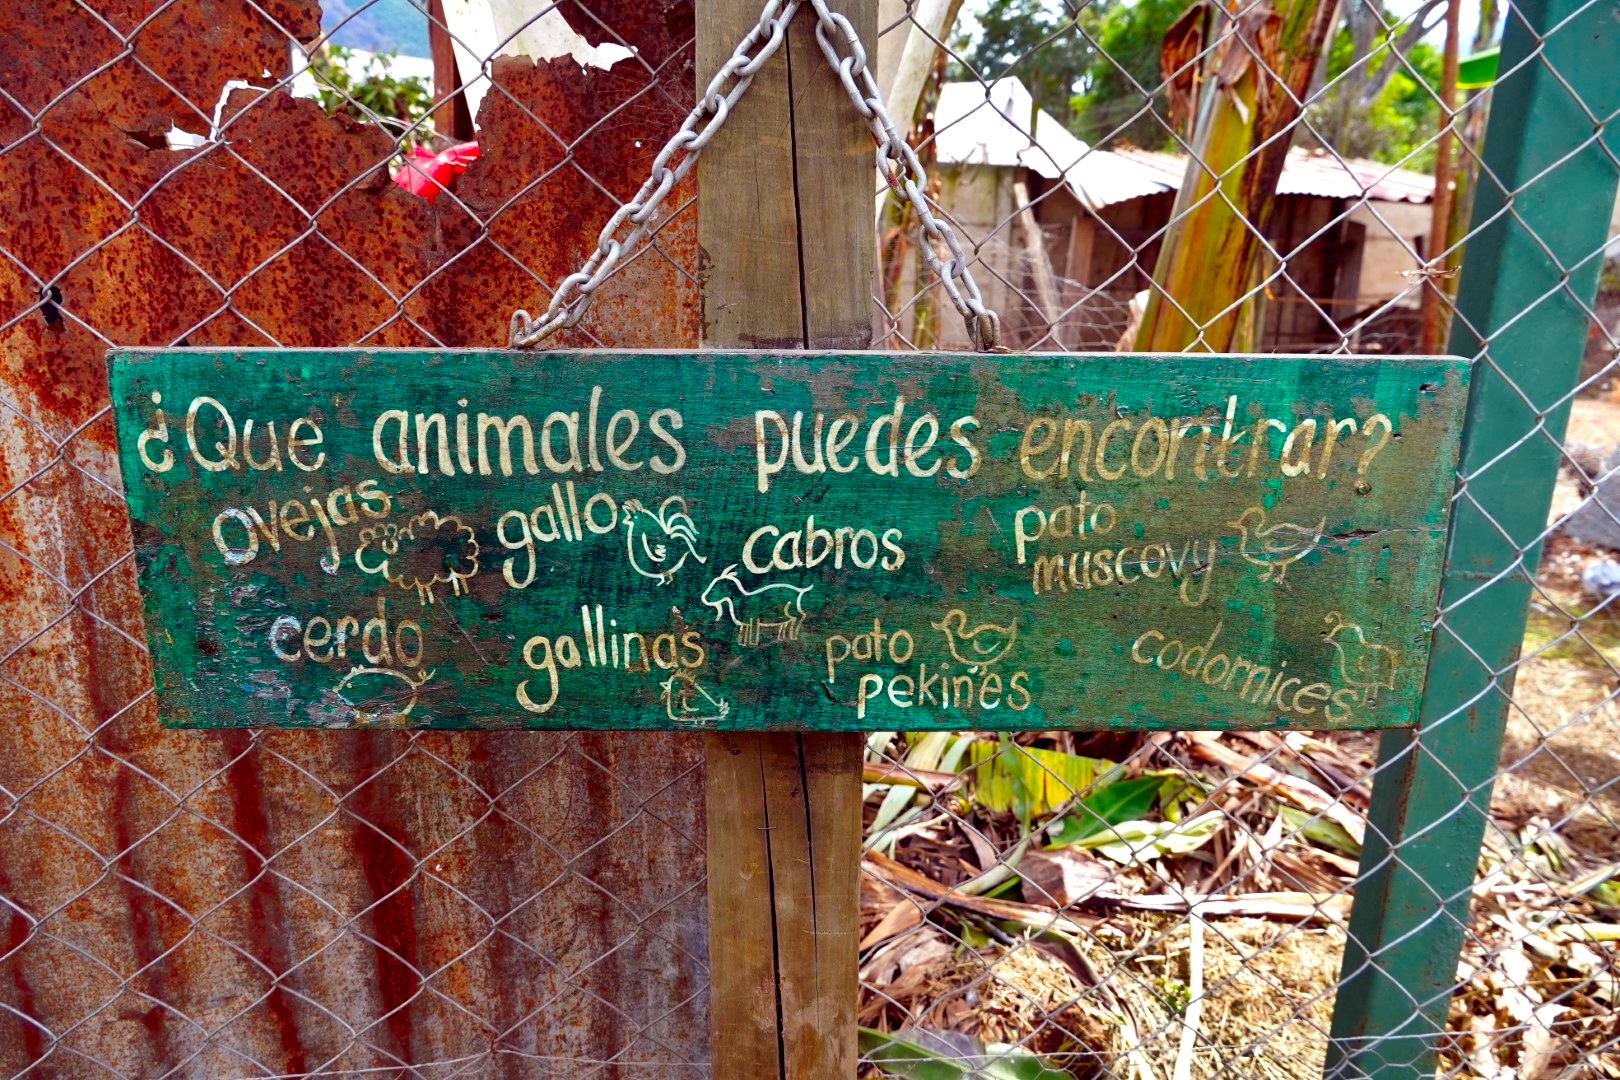 ¿Que animales puedes encontrar?
ovejas
gallo
cabros
pato
muscovy
cerdo
gallinas
pato
pekines
codornices